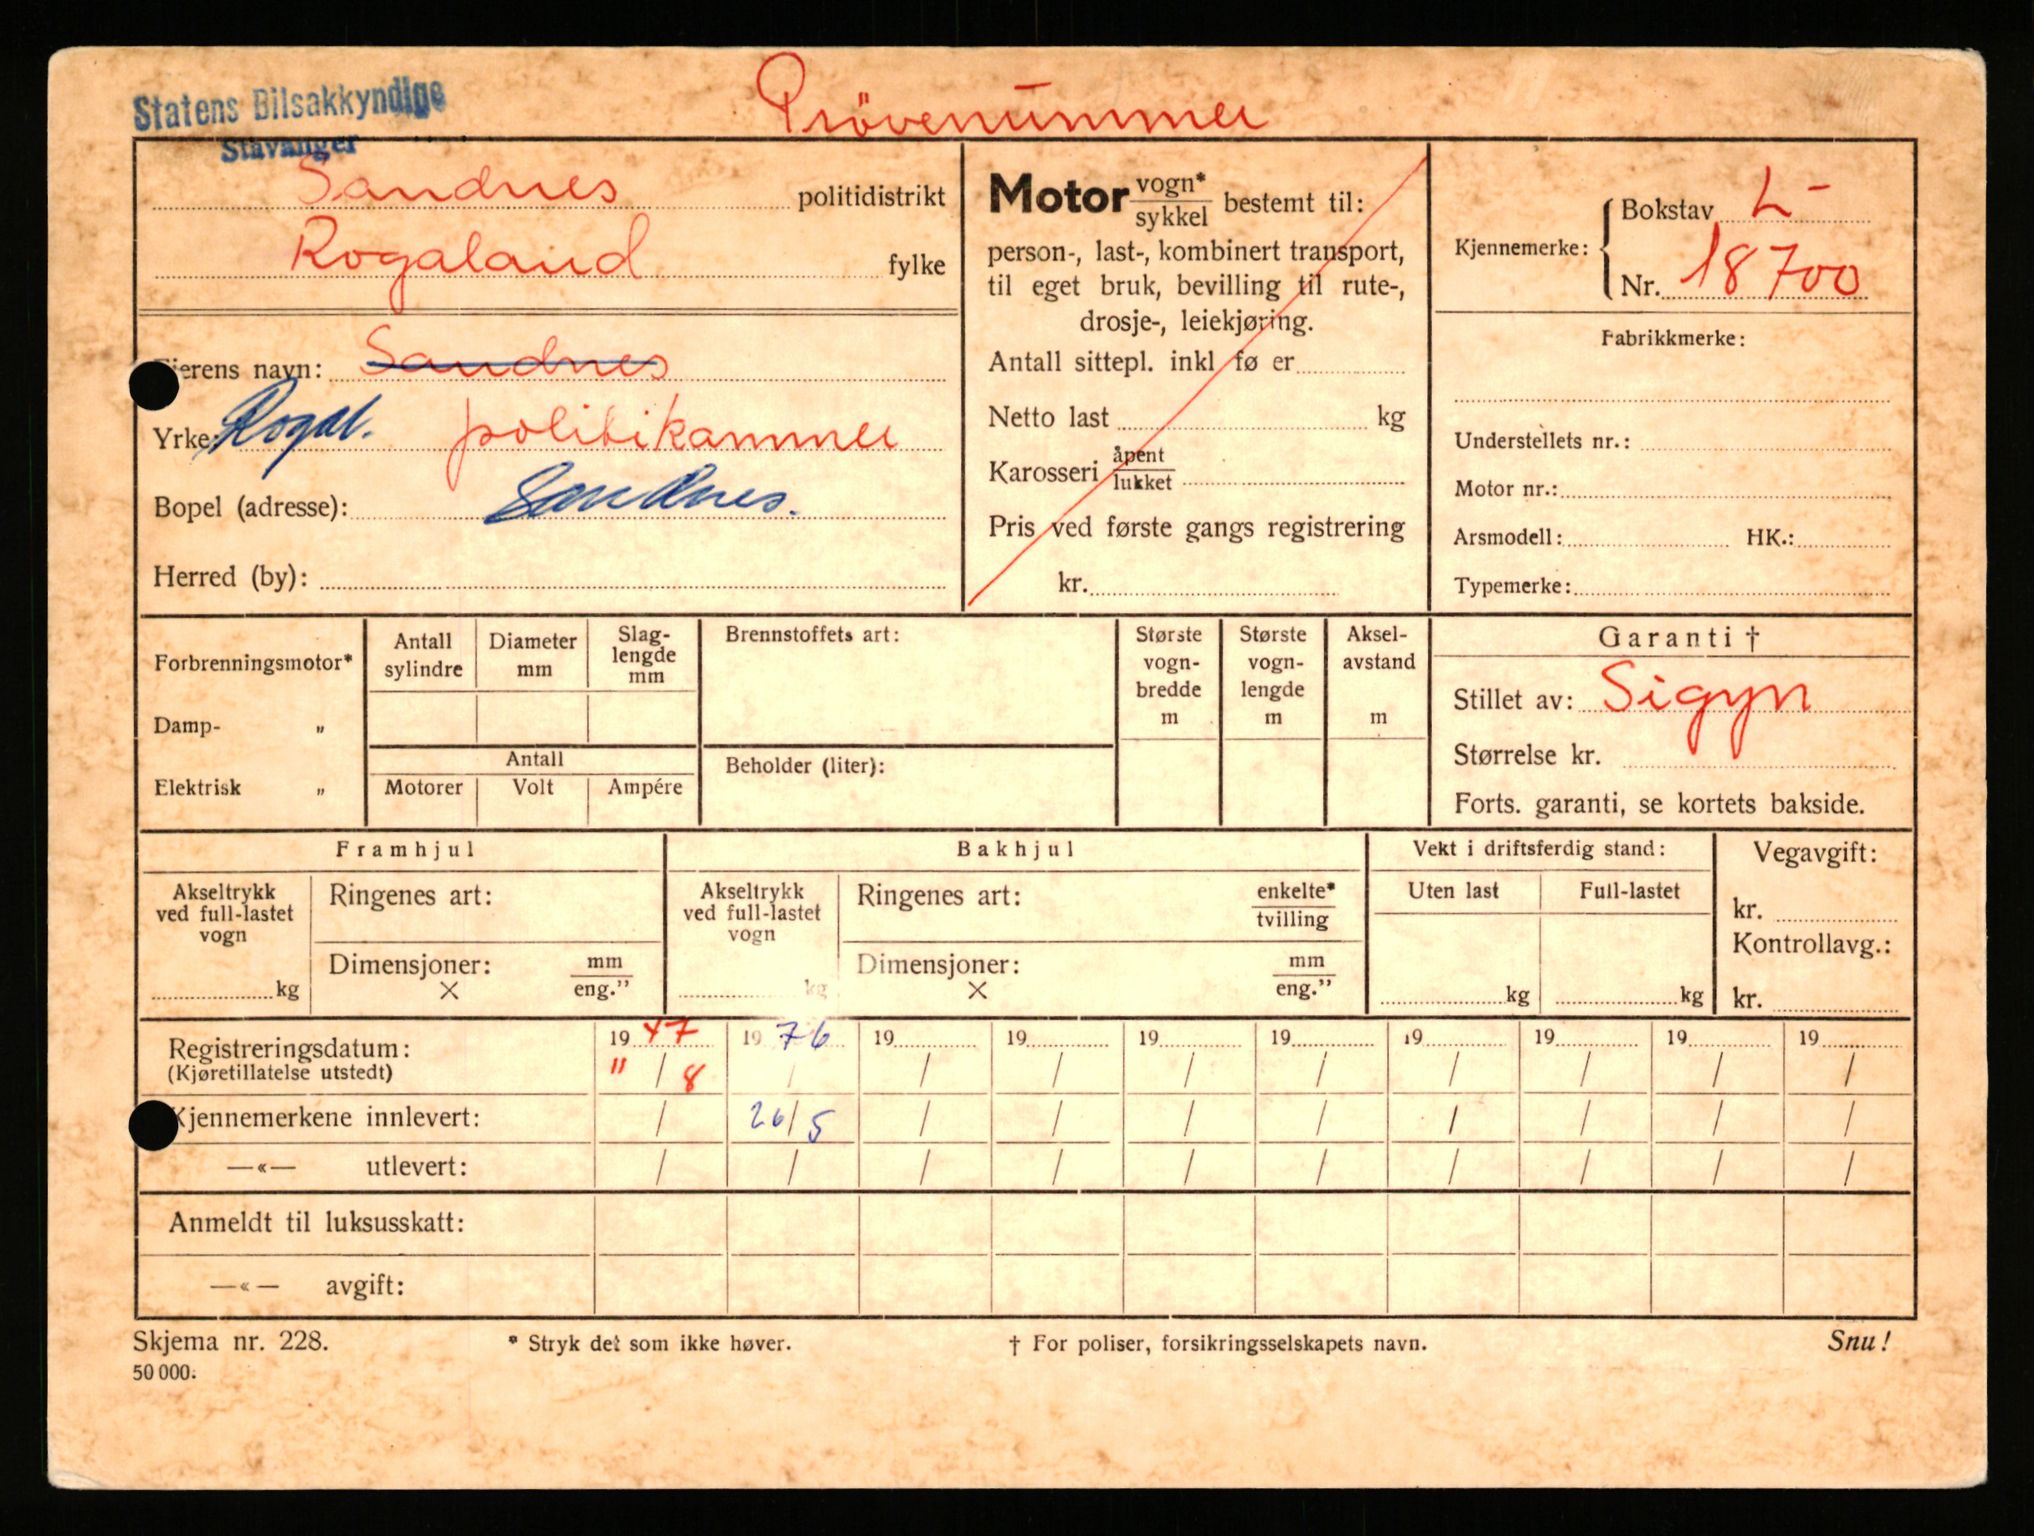 Statens Bilsakkyndige
Stavanger
Prövenummer
Sandnes politidistrikt
Rogaland fylke
Eierens navn: Sandnes
Yrke: Rogal. politikammer
Bopel (adresse): Sandnes.
Herred (by):
Motor vogn* / sykkel bestemt til:
person-, last-, kombinert transport,
til eget bruk, bevilling til rute-,
drosje-, leiekjøring.
Antall sittepl. inkl fø er
Netto last kg
Karosseri åpent / lukket
Pris ved første gangs registrering
kr.
Kjennemerke: Bokstav L-
Nr. 18700
Fabrikkmerke:
Understellets nr.:
Motor nr.:
Arsmodell: HK.:
Typemerke:
Forbrenningsmotor*
Damp- „
Elektrisk „
Antall sylindre
Diameter mm
Slag-lengde mm
Antall
Motorer Volt Ampére
Brennstoffets art:
Beholder (liter):
Største vogn-bredde m
Største vogn-lengde m
Aksel-avstand m
Garanti †
Stillet av: Sigyn
Størrelse kr.
Forts. garanti, se kortets bakside.
Framhjul
Akseltrykk ved full-lastet vogn
kg
Ringenes art:
Dimensjoner: mm
× eng."
Bakhjul
Akseltrykk ved full-lastet vogn
kg
Ringenes art: enkelte* / tvilling
Dimensjoner: mm
× eng."
Vekt i driftsferdig stand:
Uten last Full-lastet
kg kg
Vegavgift:
kr.
Kontrollavg.:
kr.
Registreringsdatum: 19 47 19 76 19 19 19 19 19 19 19 19
(Kjøretillatelse utstedt) " / 8 / / / / / / / / /
Kjennemerkene innlevert: / 26/5 / / / / / / / /
—«— utlevert: / / / / / / / / / /
Anmeldt til luksusskatt:
—«— avgift:
Skjema nr. 228. * Stryk det som ikke høver. † For poliser, forsikringsselskapets navn. Snu!
50 000.